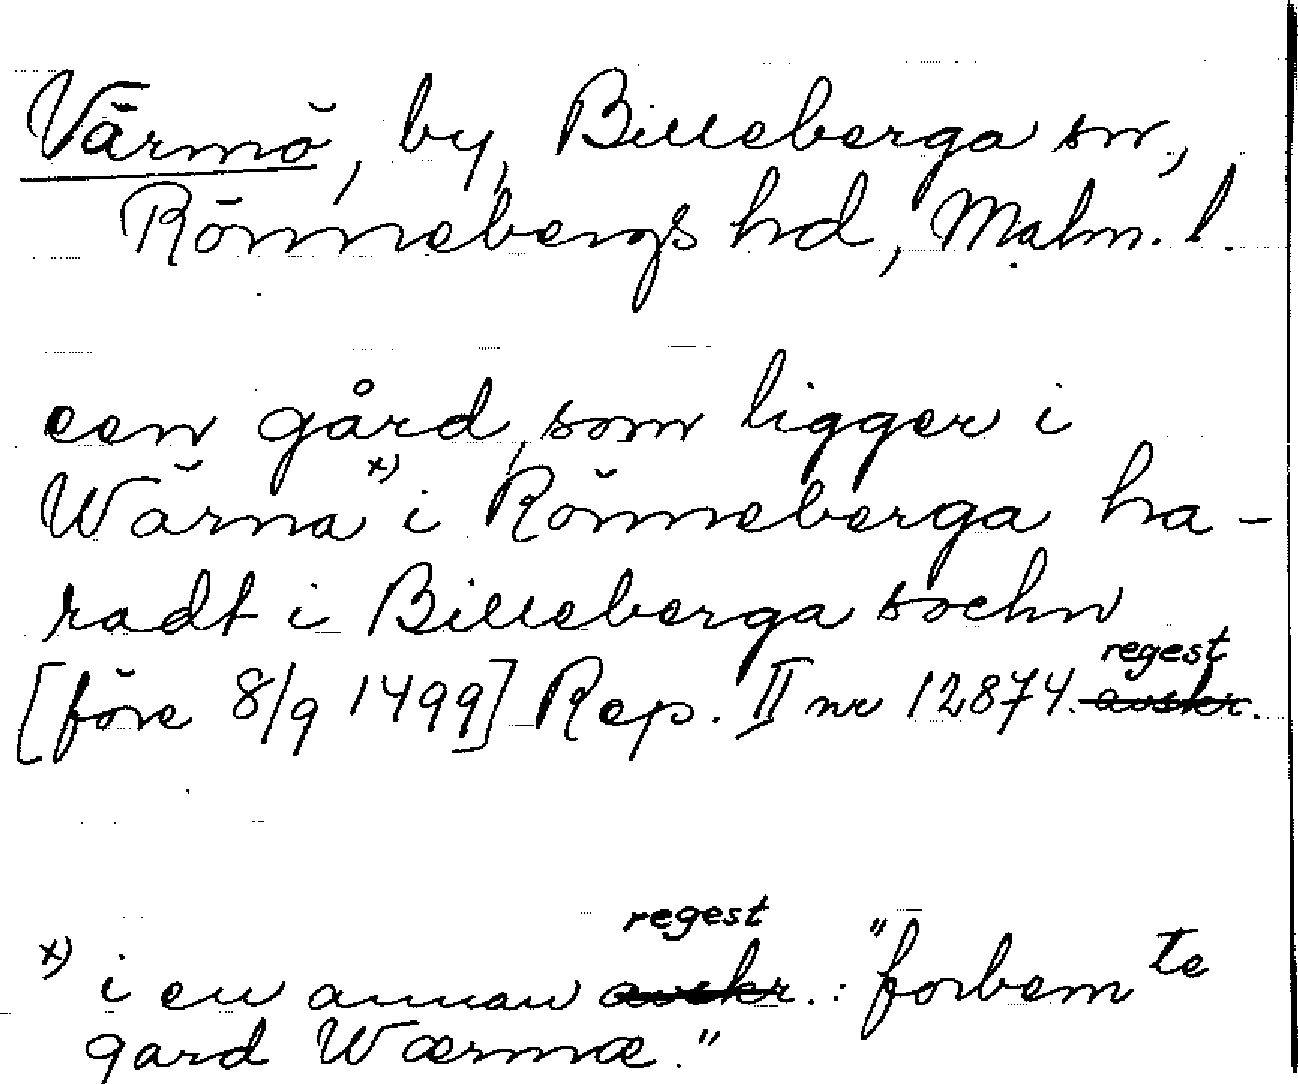 Värmö, by, Billeberga sn,
Rönnebergs hd, Malm. l.
een gård, som ligger i
Wärna x) i Rönneberga ha-
radt i Billeberga sochn
[före 8/9 1499] Rep. II nr 12874. regest avskr.
x) i en annan regest avskr.: "forbem te
gard Wærmæ."